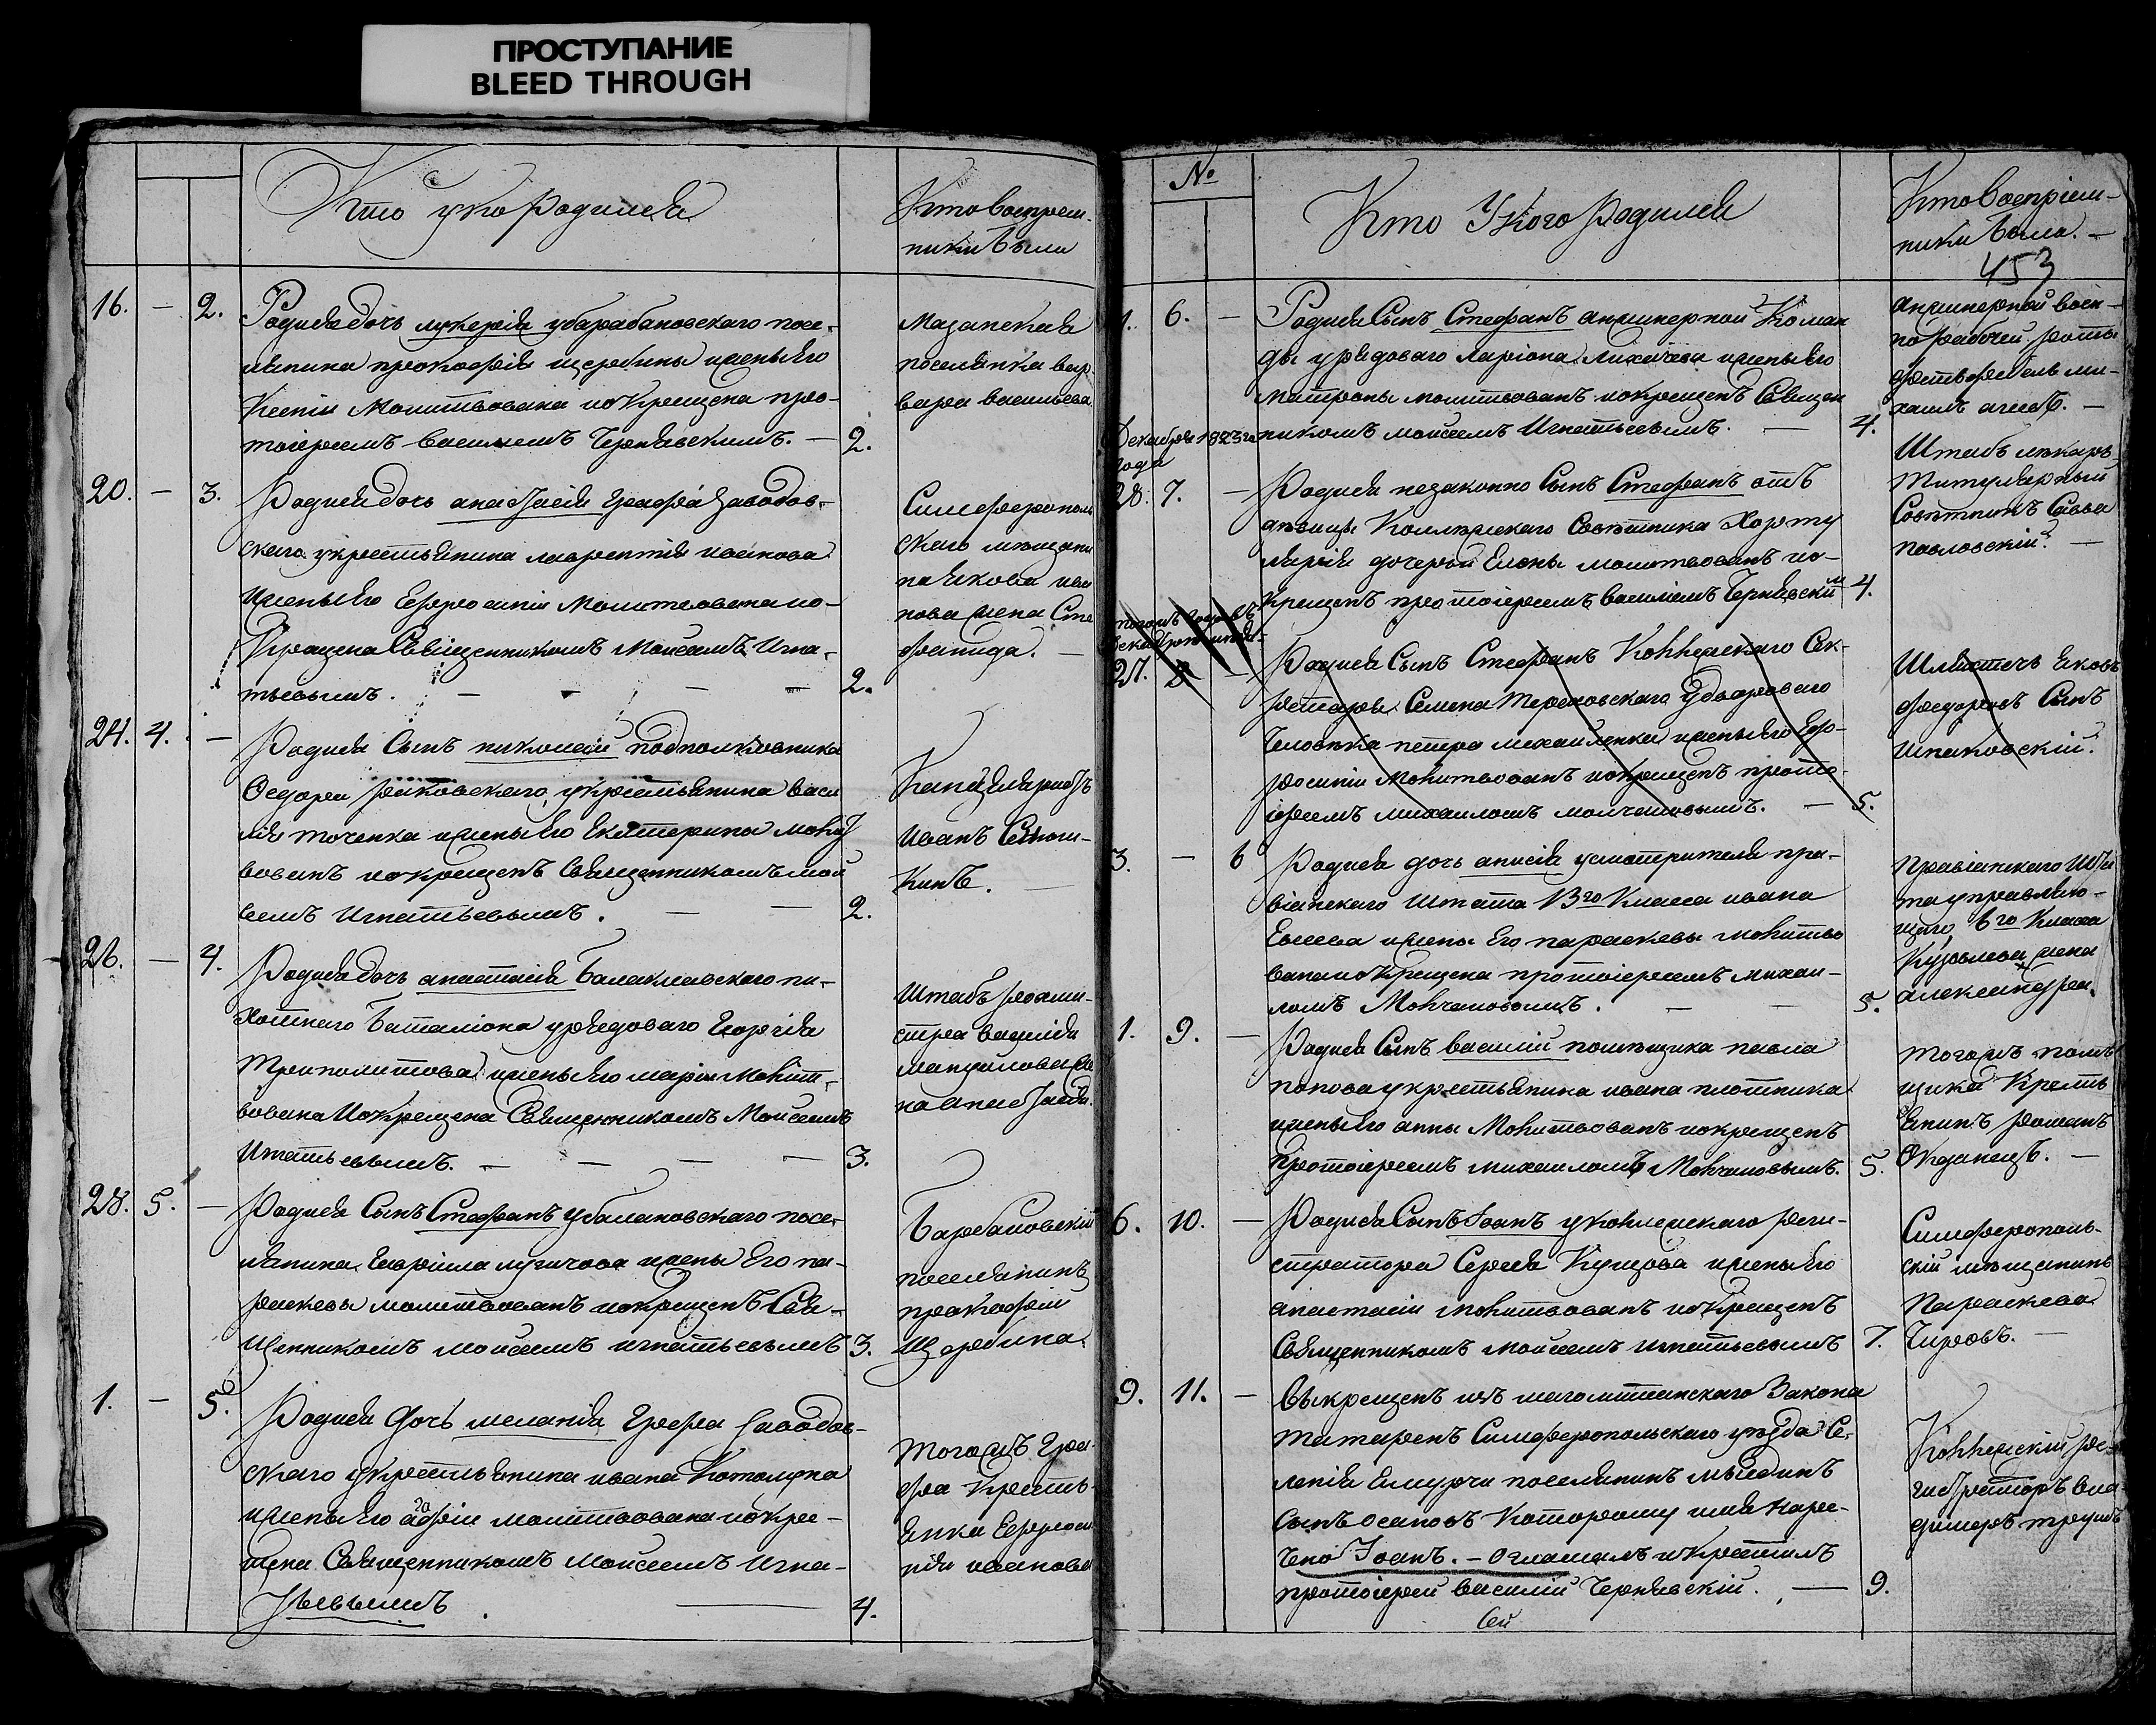 ПРОСТУПАНИЕ
BLEED THROUGH
Кто укого Родился
Кто Восприем-
ники были
16. — 2. Родися дочь лукерия убарабановского посе-
лянина прокофия щербины ижены Его
Ксении Молитвована иокрещена про-
тоиереем василием Чернявским. — 2.
Мазанская
поселянка вар
вара васильева
20. — 3. Родися дочь анастасия Графа Заводов-
скаго укрестьянина лаврентия иванова
Ижены Его Евфросинии Молитвована ио-
Крещена Священником Моисеем Игна-
тьевым. — — — 2.
Симферополь
скаго мещани
на Якова ива
нова жена Сте
фанида. —
24. 4. — Родися Сынъ николай подполковника
Федора раковского, укрестьянина васи
лия точенка ижены Его Екатерины молит
вованъ иокрещенъ Священникомъ мои
сеемъ Игнатьевымъ. — — 2.
Канцеляристъ
Иванъ
кинъ. —
26. — 4. Родися дочь анастасия Балаклавского пе-
хотнаго Баталиона урядоваго Георгия
ижены Его марии Молит-
вована Иокрещена Священникомъ Моисеемъ
Игнатьевымъ. — — — — 3.
Штабъ
василия
мануилова же
на анастасия
28. 5. — Родися Сынъ Стефанъ убалановского посе-
лянина Гавриила мугичова ижены Его па-
раскевы молитвованъ иокрещенъ Свя-
щенникомъ моисеемъ игнатьевымъ 3.
Барабановский
поселянинъ
прокофий
Щербина
1. — 5. Родися дочь мелания Графа Заводов-
скаго укрестьянина ивана Котолупа
ижены Его агафии молитвована иокре-
щена Священникомъ Моисеемъ Игна-
тьевымъ. — 4.
Тогожъ гра-
фа Крестъ-
янка Евфроси
ния иванова
№
Кто Укого родился
Кто Восприем-
ники были. —
453
1. 6. — Родися Сынъ Стефанъ анжинерной Коман
ды урядоваго Лариона Михеева ижены Его
матроны молитвованъ иокрещенъ Священ
никомъ моисеемъ Игнатьевымъ. — 4.
анжинерной воен-
но рабочей роты
фельдфебель ми-
хаилъ —
Декабря 1823го
года
28. 7. — Родися незаконно Сынъ Стефанъ отъ
девицы Коллежскаго Советника
дочери Елены молитвованъ ио-
крещенъ протоиереемъ василиемъ Чернявским 4.
Штабъ лекарь
Титулярный
Советникъ Савва
павловский. —
27. 8 — Родися Сынъ Стефанъ Коллежскаго Сек-
ретаря Семена Тереновского удвороваго
Человека петра михайленка ижены Его Евф-
росинии молитвованъ иокрещенъ прото-
иереемъ михаиломъ молчановымъ. — 5.
Шляхтичъ Яковъ
федоровъ Сынъ
Шпаковский.
3. — 6 Родися дочь анисия усмотрителя про-
виантскаго штата 13го Класса ивана
Евсеева ижены Его параскевы молитво
вана иокрещена протоиереемъ михаи-
ломъ Молчановымъ. — — 5.
Провиантскаго шта
та управляю-
щаго 6го Класса
Кузьмева жена
александра
1. 9. — Родися Сынъ василий помещика павла
попова укрестьянина ивана плотника
ижены Его анны Молитвованъ иокрещенъ
Протоиереемъ михаиломъ Молчановымъ. 5.
Тогожъ поме
щика Кресть
янинъ романъ
—
6. 10. — Родися Сынъ Иоанъ уколлежскаго реги-
стратора Сергея Купцова ижены Его
анастасии молитвованъ иокрещенъ
Священникомъ моисеемъ игнатьевымъ 7.
Симферополь-
ский мещанинъ
Параскева
Чировъ. —
9. 11. — Выкрещенъ изъ магометанскаго Закона
татаренъ Симферопольскаго уезда Се-
ления Емурчи поселянинъ
Сынъ осановъ Которому имя Наре-
чено Иоанъ. — оглашалъ икрестилъ
протоиерей василий Чернявский. — 9.
Коллежский ре-
гистраторъ вла
димеръ
Сей